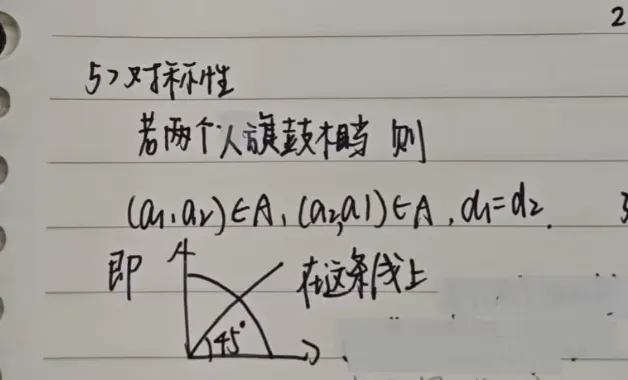 2
5> 对称性
若两个人旗鼓相当 则
(a₁,a₂)∈A, (a₂,a1)∈A, d₁=d₂.
即 45° 在这条线上